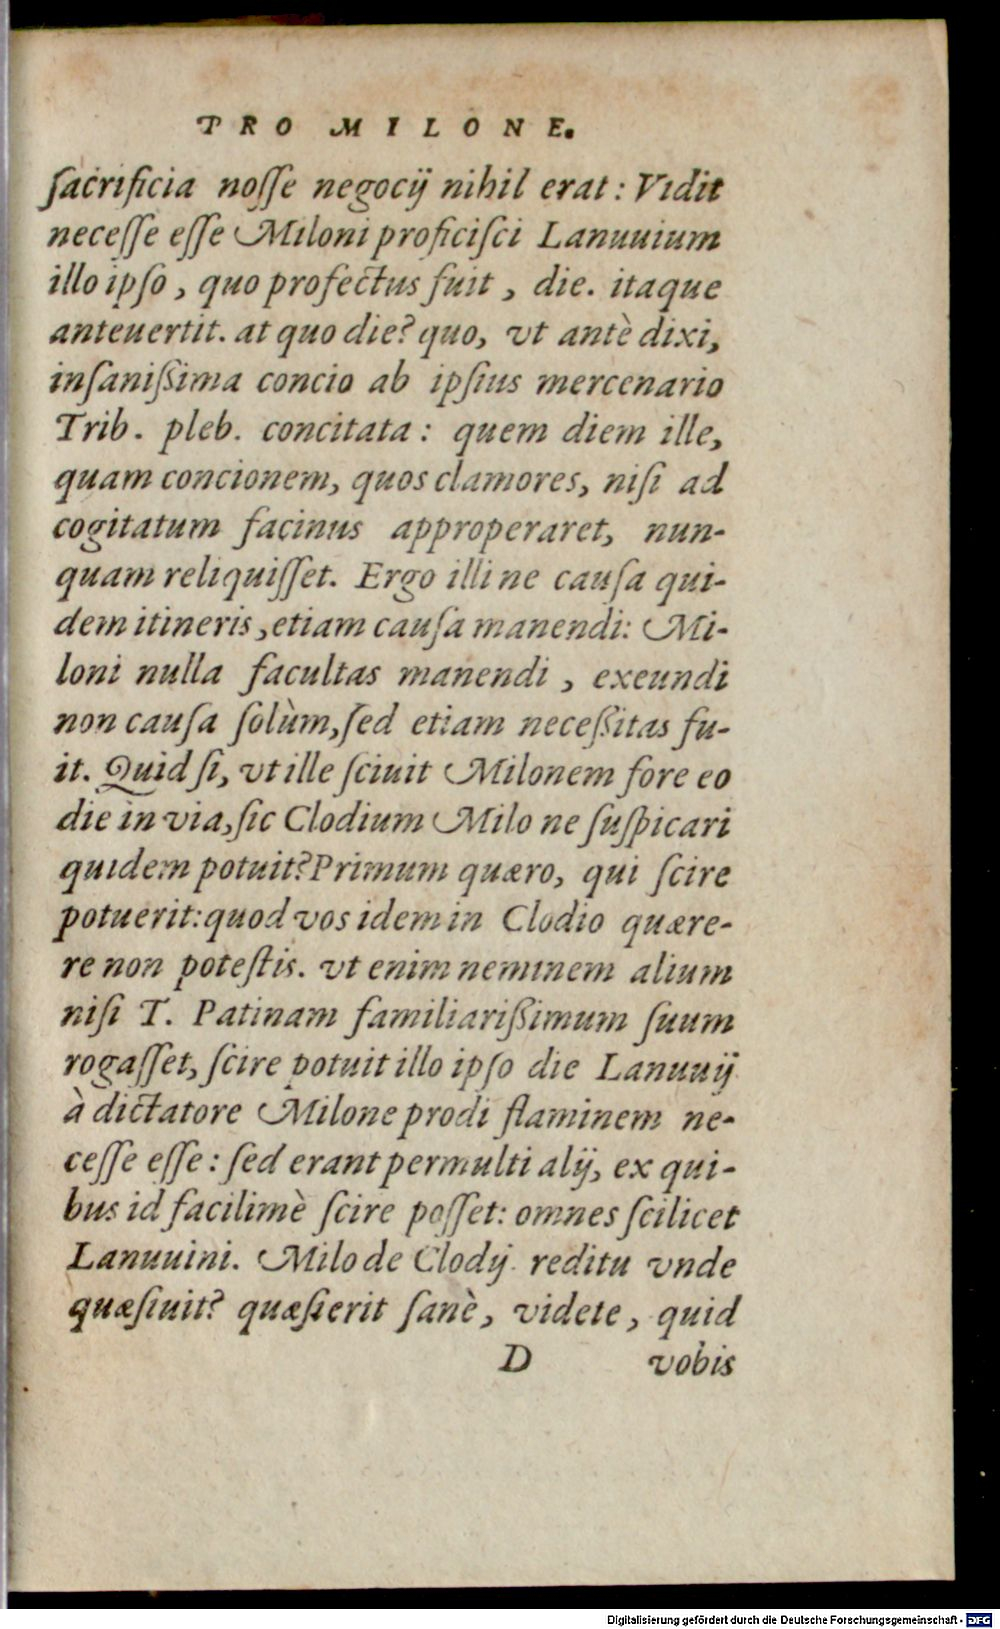 PRO MILONE.
ſacrificia noſſe negocij nihil erat: Vidit
neceſſe eſſe Miloni proficiſci Lanuuium
illo ipſo, quo profectus fuit, die. itaque
anteuertit. at quo die? quo, vt antè dixi,
inſanißima concio ab ipſius mercenario
Trib. pleb. concitata: quem diem ille,
quam concionem, quos clamores, niſi ad
cogitatum facinus approperaret, nun-
quam reliquiſſet. Ergo illi ne cauſa qui-
dem itineris, etiam cauſa manendi: Mi-
loni nulla facultas manendi, exeundi
non cauſa ſolùm, ſed etiam neceßitas fu-
it. Quid ſi, vt ille ſciuit Milonem fore eo
die in via, ſic Clodium Milo ne ſuſpicari
quidem potuit? Primum quæro, qui ſcire
potuerit: quod vos idem in Clodio quære-
re non poteſtis. vt enim neminem alium
niſi T. Patinam familiarißimum ſuum
rogaſſet, ſcire potuit illo ipſo die Lanuuij
à dictatore Milone prodi flaminem ne-
ceſſe eſſe: ſed erant permulti alij, ex qui-
bus id facilimè ſcire poſſet: omnes ſcilicet
Lanuuini. Milo de Clodij reditu vnde
quæſiuit? quæſierit ſanè, videte, quid
D vobis
Digitalisierung gefördert durch die Deutsche Forschungsgemeinschaft - DFG